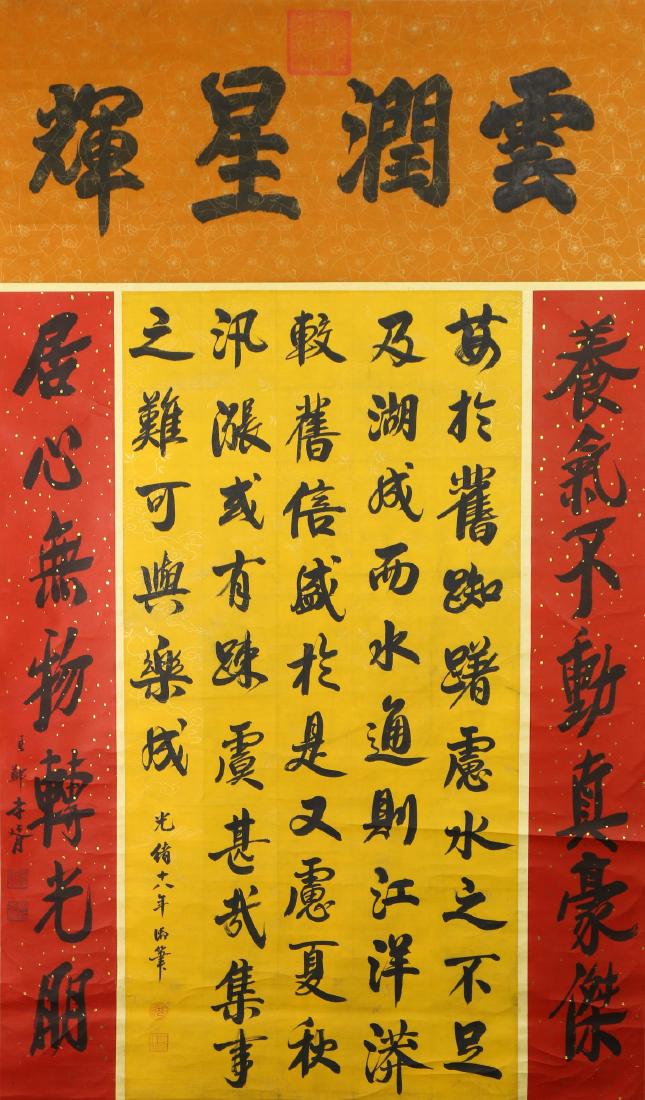 雲潤星輝
養氣不動真豪傑
於舊踟躇慮水之不足
及湖成而水通則江洋漭
較舊倍盛於是又慮夏秋
汛漲或有疎虞甚哉集事
之難可與樂成
光緒十八年御筆
居心無物轉光明
鄭孝胥